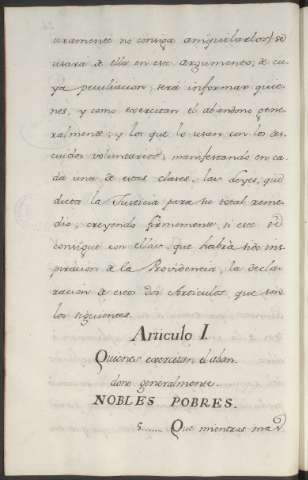 uramente no consiga aniquilarlos) se
usara de ellas en este argumento, de cu
ya peculiacion, sera informar quie
nes, y como exercitan el abandono gene
ralmente; y los que lo usan con los des
cuidos voluntarios; manifestando en ca
da una de estas clases, las Leyes, que
dicta la Justicia para su total reme
dio; creyendo firmemente si este se
consigue con ellas, que habia sido ins
piracion de la Providencia, la decla
racion de estos dos Articulos, que son
los siguientes.
Articulo I.
Quienes exercitan el aban
dono generalmente.
NOBLES POBRES.
5...... Que mientras mas